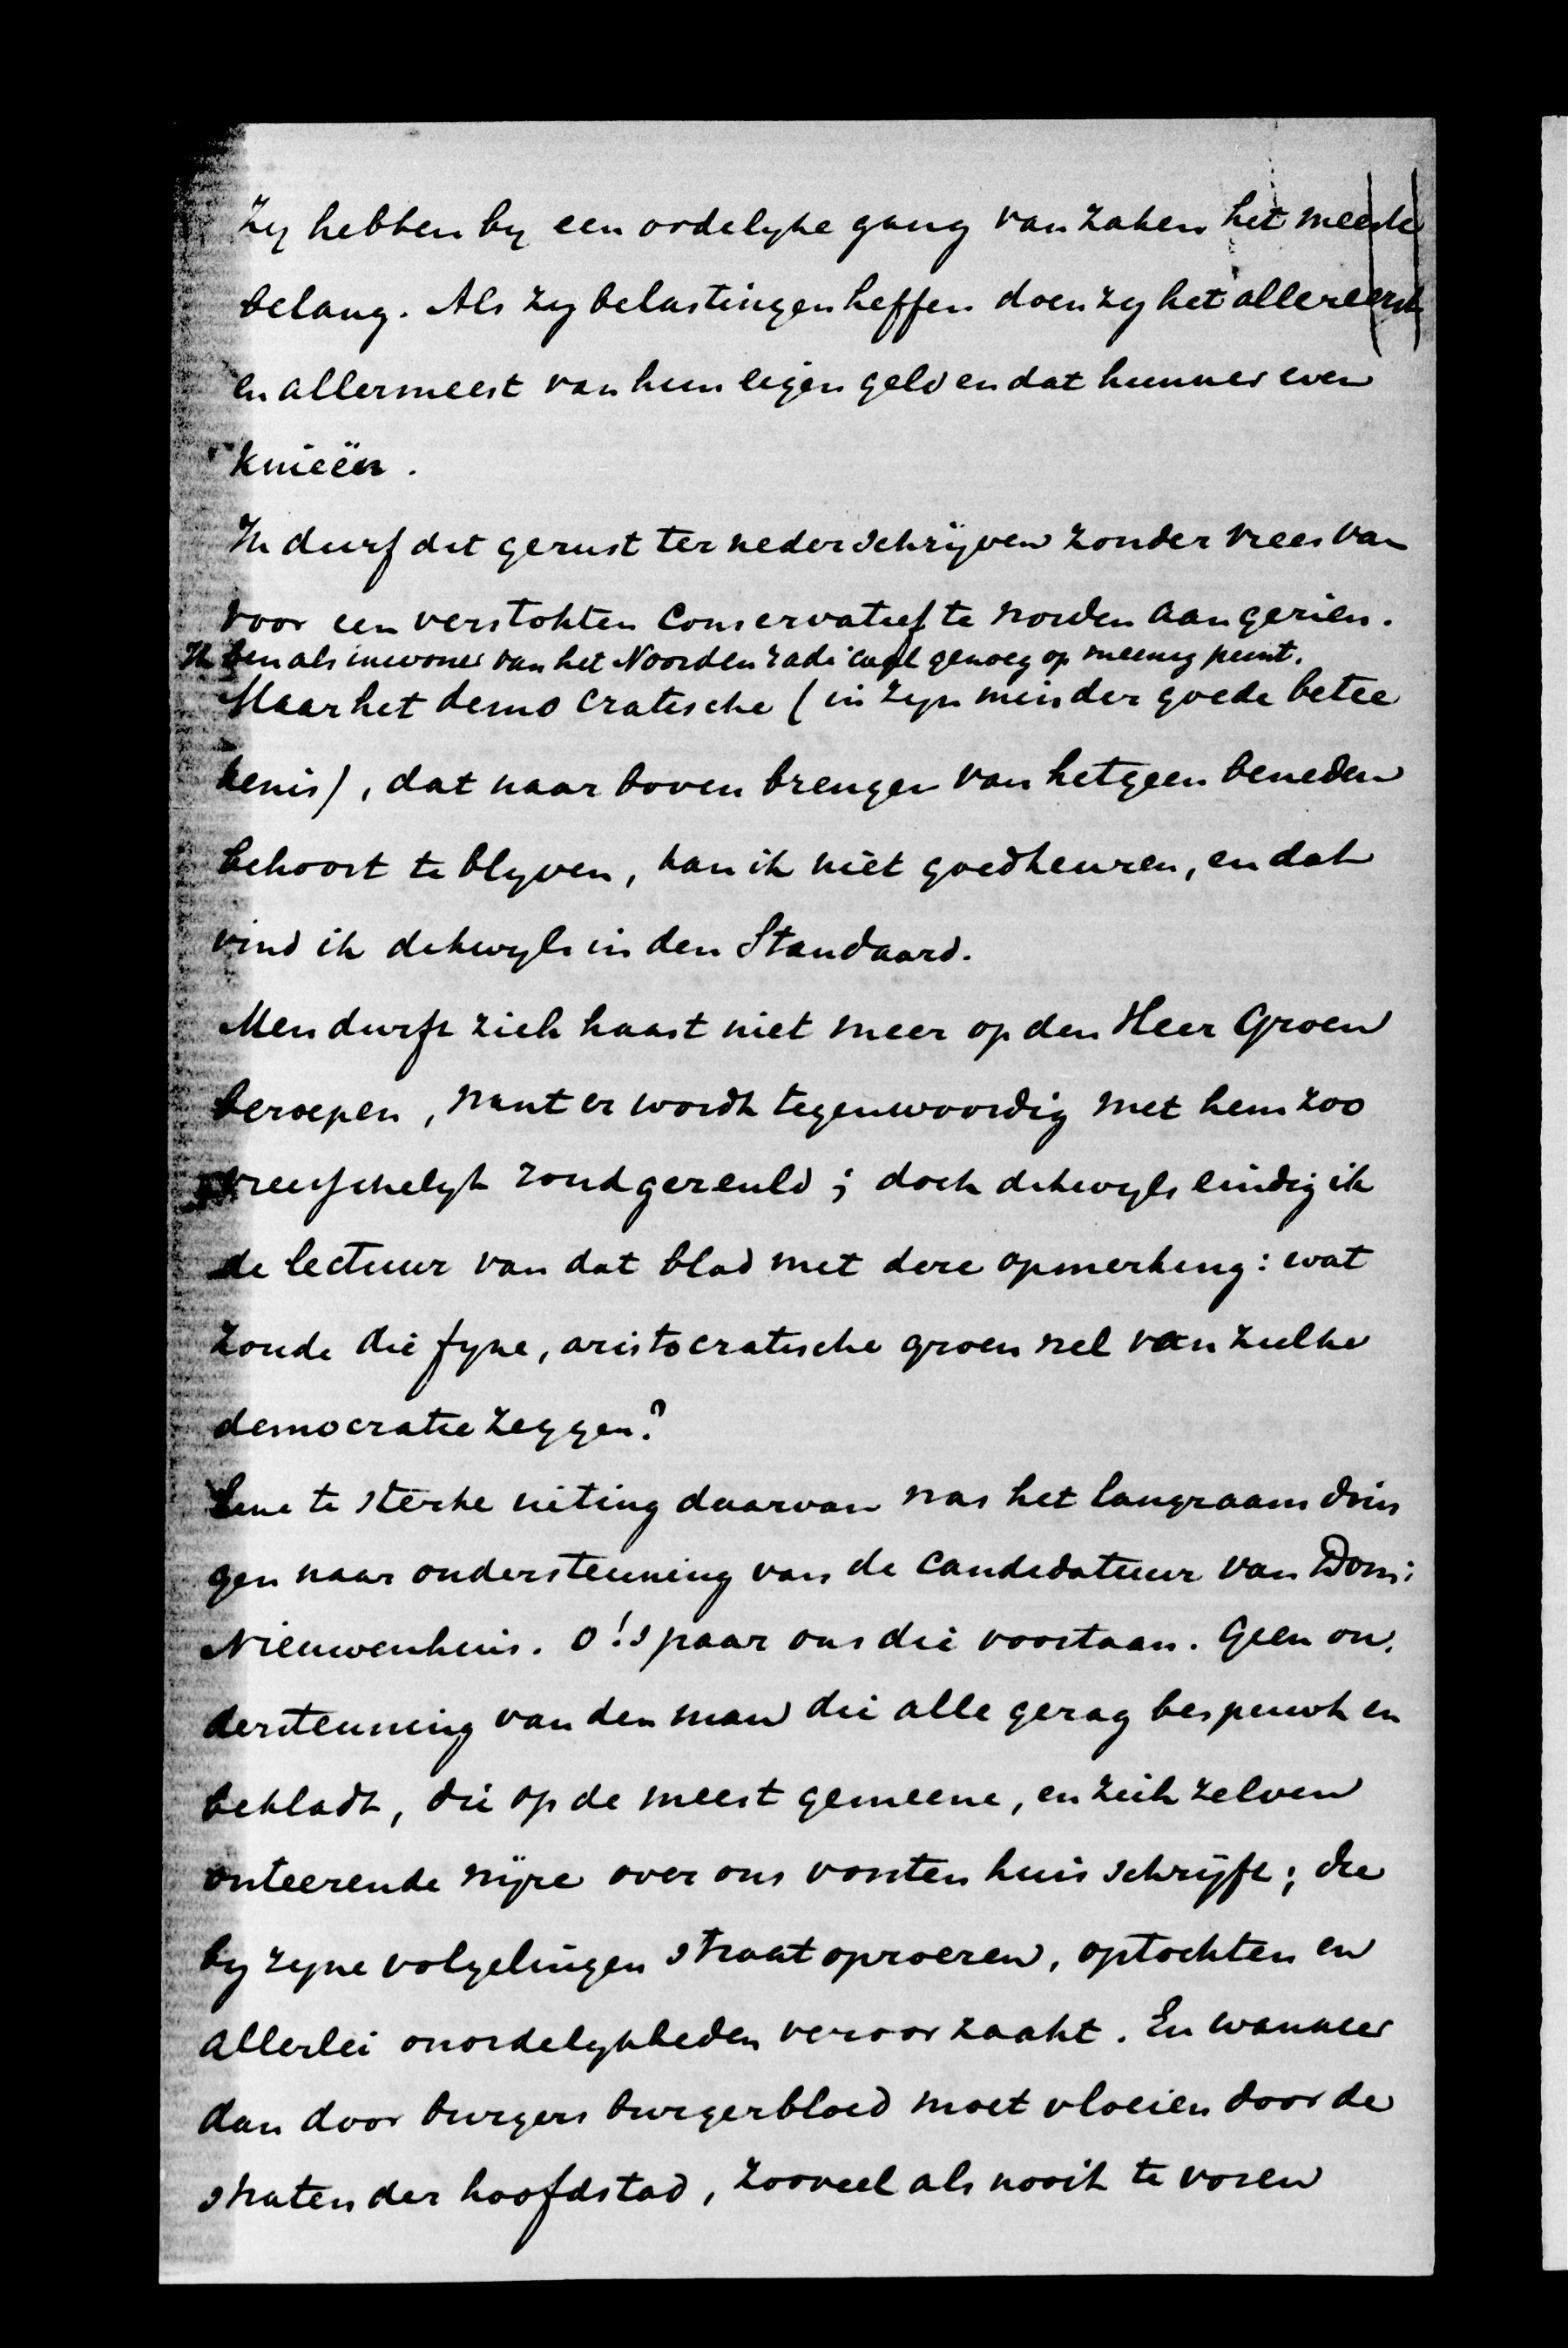 Zy hebben by een ordelyke gang van zaken het meeste
belang. Als zy belastingen heffen doen zy het allereerst
en allermeest van hun eigen geld en dat hunner even
knieën.
Ik durf dit gerust ter nederschrijven zonder vrees van
voor een verstokten Conservatief te worden aangezien.
Ik ben als inwoner van het Noorden radicaal genoeg op menig punt.
Maar het democratische (in zyn minder goede betee
kenis), dat naar boven brengen van hetgeen beneden
behoort te blyven, kan ik niet goedkeuren, en dat
vind ik dikwyls in den Standaard.
Men durft zich haast niet meer op den Heer Groen
beroepen, want er wordt tegenwoordig met hem zoo
vreesselyk rondgezeuld; doch dikwyls eindig ik
de lectuur van dat blad met deze opmerking: wat
zoude die fyne, aristocratische Groen wel van zulke
democratie zeggen?
Eene te sterke uiting daarvan was het langzaam drin
gen naar ondersteuning van de Candidatuur van Dom:
Nieuwenhuis. O! spaar ons die voortaan. Geen on.
dersteuning van den man die alle gezag bespuwt en
bekladt, die op de meest gemeene, en zich zelven
onteerende wijze over ons vorstenhuis schrijft; die
by zyne volgelingen straatoproeren, optochten en
allerlei onordelykheden veroorzaakt. En wanneer
dan door burgers burgerbloed moet vloeien door de
straten der hoofdstad, zooveel als nooit te voren